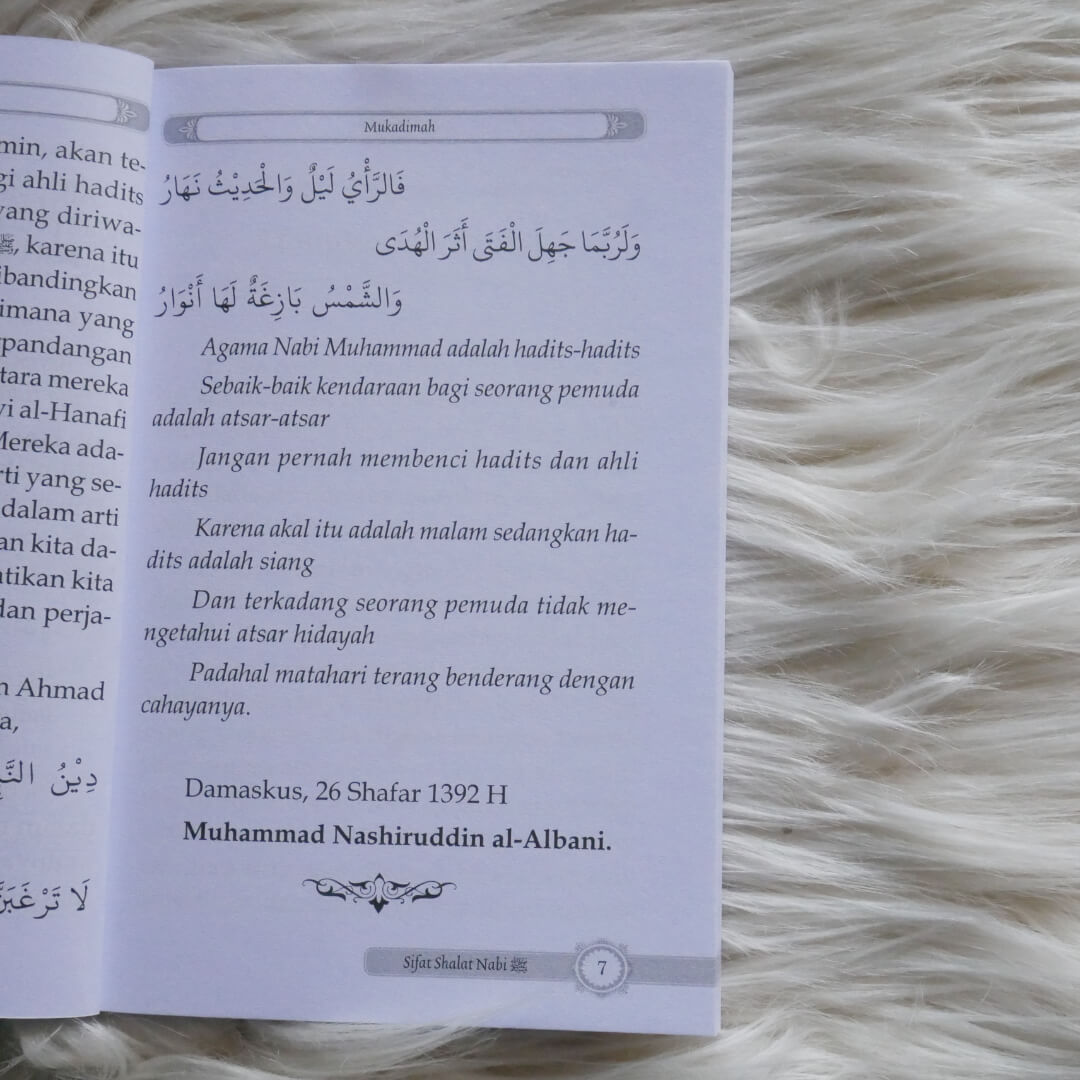 min, akan te-
gi ahli hadits
yang diriwa-
ﷺ, karena itu
ibandingkan
imana yang
pandangan
tara mereka
vi al-Hanafi
Mereka ada-
rti yang se-
dalam arti
an kita da-
atikan kita
dan perja-
n Ahmad
a,
دِيْنُ النَّبِ
لَا تَرْغَبَنَّ
Mukadimah
فَالرَّأْيُ لَيْلٌ وَالْحَدِيْثُ نَهَارُ
وَلَرُبَّمَا جَهِلَ الْفَتَى أَثَرَ الْهُدَى
وَالشَّمْسُ بَازِغَةٌ لَهَا أَنْوَارُ
Agama Nabi Muhammad adalah hadits-hadits
Sebaik-baik kendaraan bagi seorang pemuda
adalah atsar-atsar
Jangan pernah membenci hadits dan ahli
hadits
Karena akal itu adalah malam sedangkan ha-
dits adalah siang
Dan terkadang seorang pemuda tidak me-
ngetahui atsar hidayah
Padahal matahari terang benderang dengan
cahayanya.
Damaskus, 26 Shafar 1392 H
Muhammad Nashiruddin al-Albani.
Sifat Shalat Nabi ﷺ
7